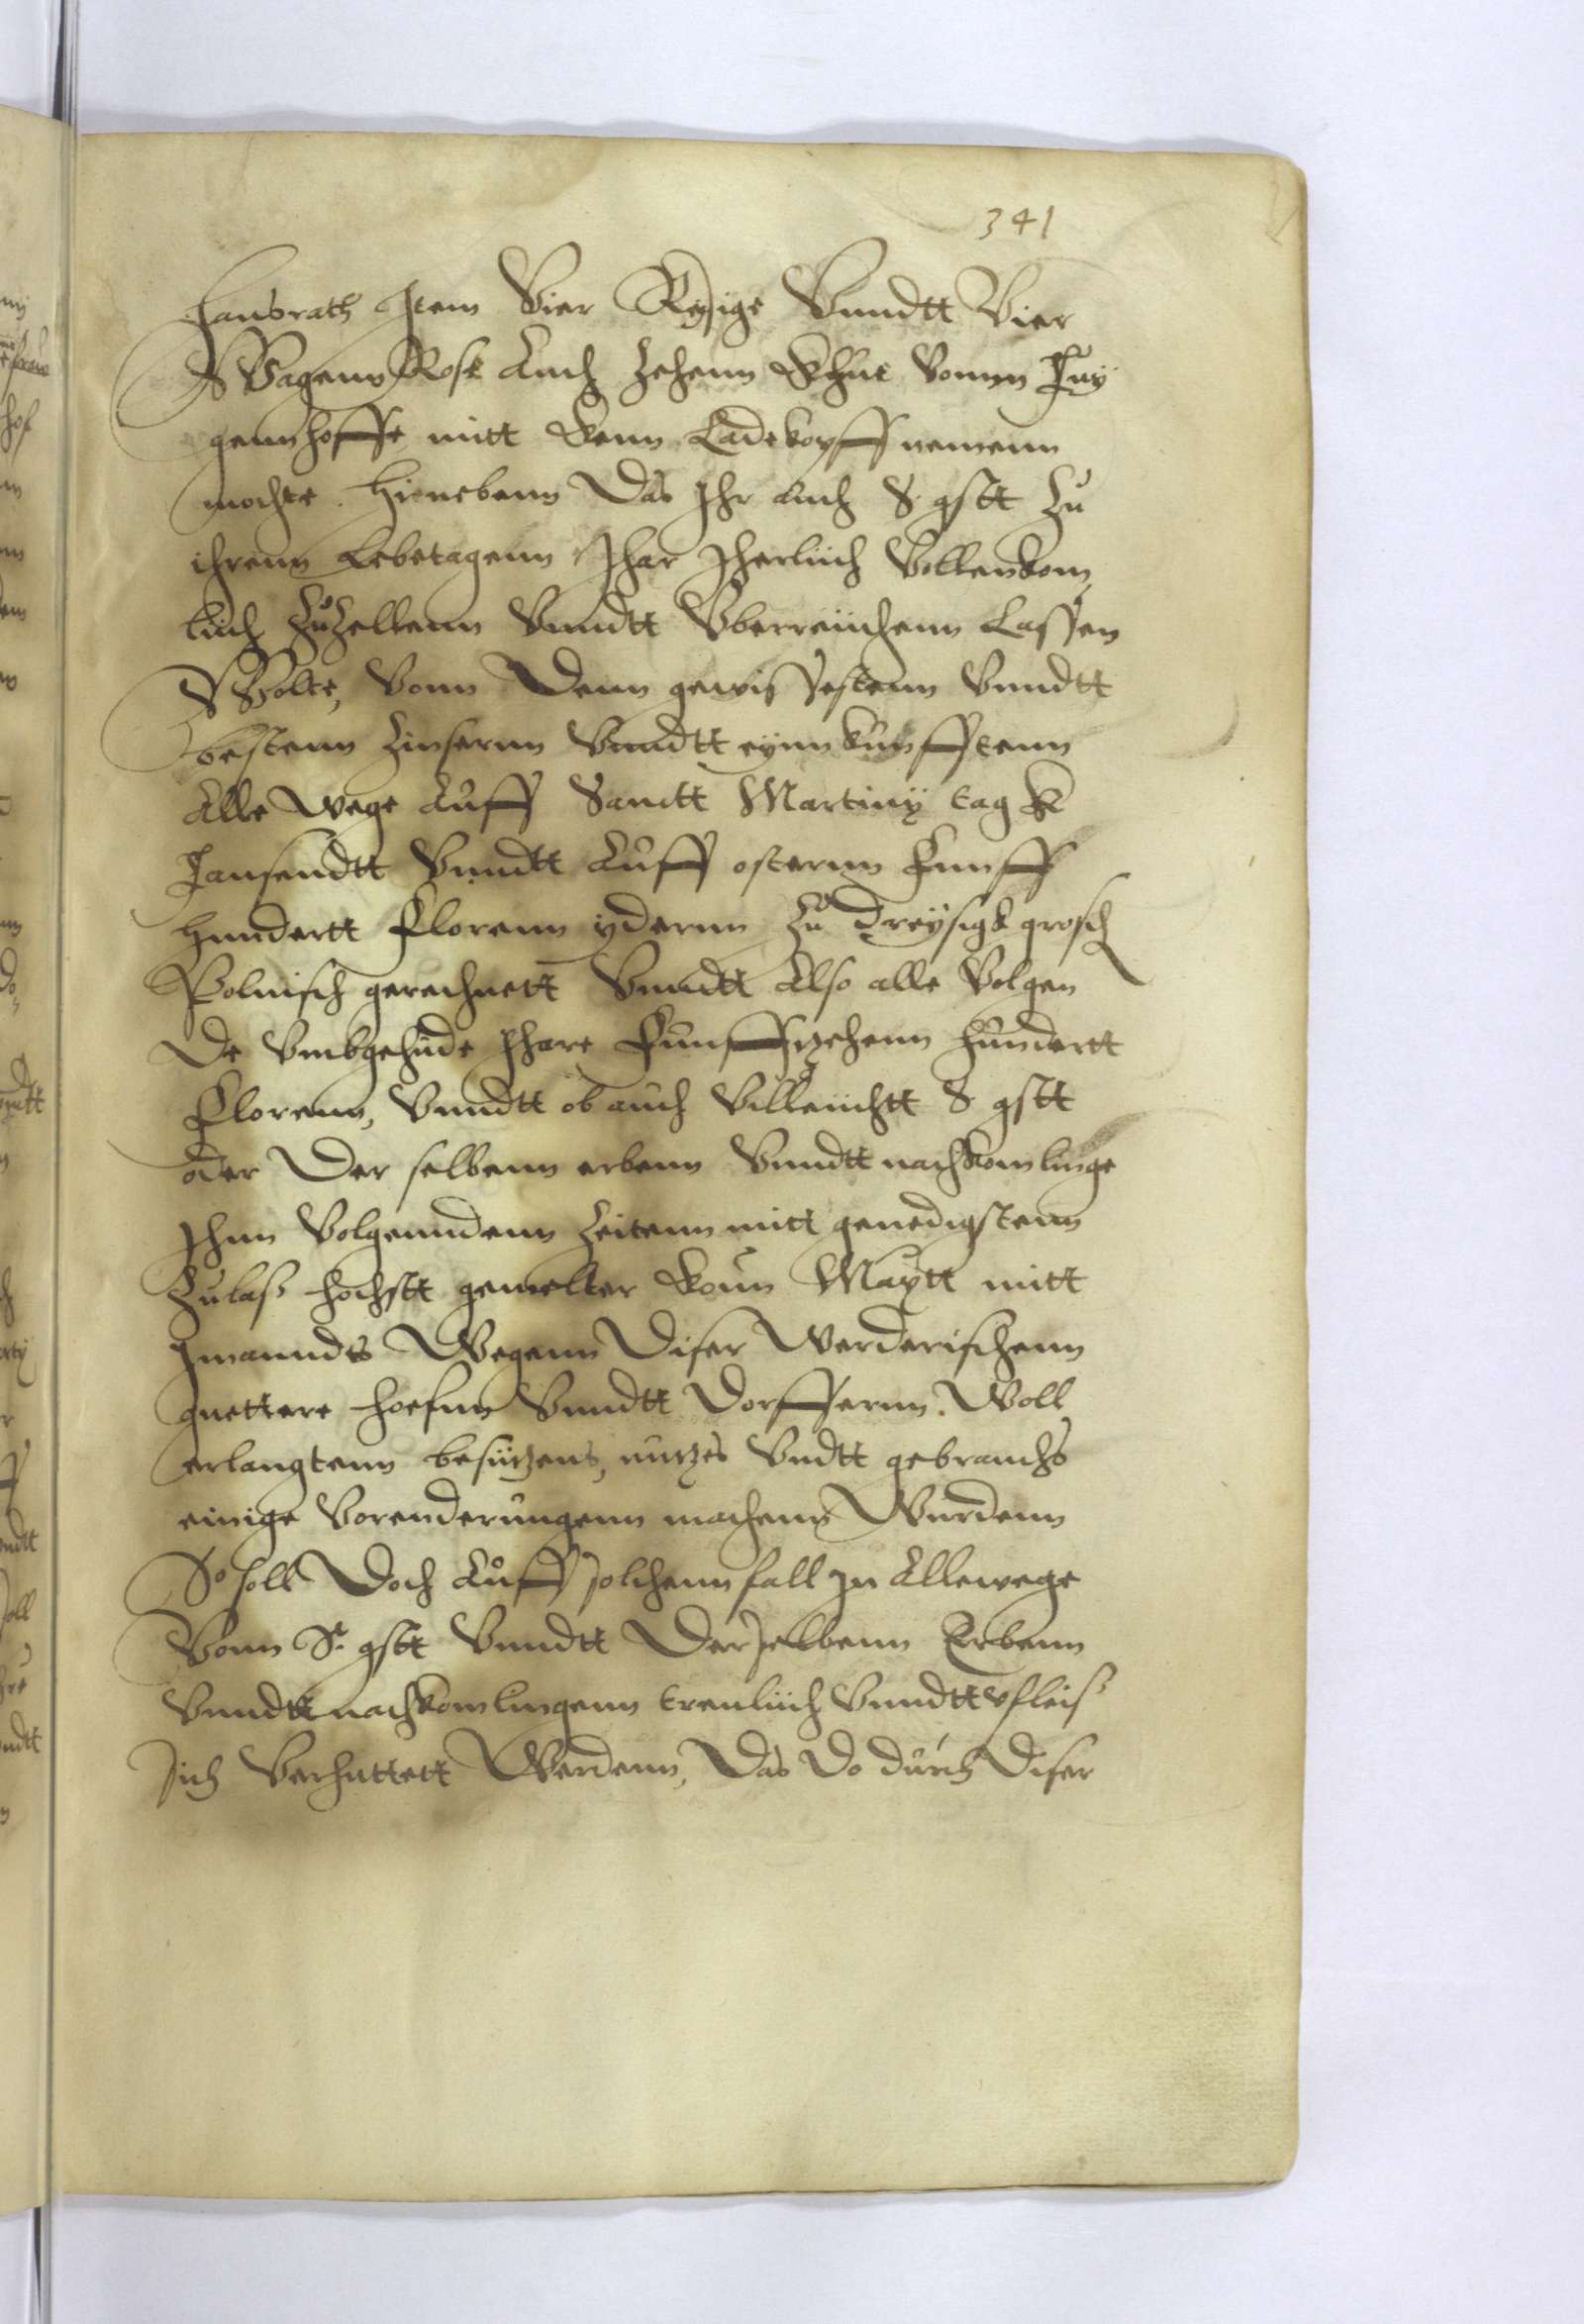 341
hausrath Item Vier Reysige Vnndtt Vier
Wagenn Rosk Auch Zehenn Khue Vonn Tuy
gennhoffe mitt kenn Ladekopff nemenn
mochte. Hienebenn Das Ihr Auch S gstt Zu
ihrenn Lebetagenn Ihar Iherlich Vollenkom
lich Zuzellenn Vnndtt Vberreichenn Lassen
Wolte, Vonn Denn gewissestenn Vnndtt
bestenn Zinsernn Vnndtt eynnkunfftenn
Alle wege Auff Sanctt Martiny tag
Tausendtt Vnndtt Auff osternn Funff
hundertt Florenn ydernn Zu dreysigk grosch
Polnisch gerechnett Vnndtt Also alle Volgen
De Vmbgehnde Ihare Funffzehenn hundertt
Florenn, Vnndtt ob auch Villeichtt S gstt
oder Der selbenn erbenn Vnndtt nachkomlinge
Ihnn Volgenndenn Zeitenn mitt genedigstenn
Zulass hochstt gemelter Koun Maytt mitt
Imanndts Wegenn Diser Werderischenn
guettere hoefenn Vnndtt Dorffernn. Woll
erlangtenn besitzens, nutzes Vndtt gebrauchs
einige Vorenderungenn machenn Wurdenn
So soll Doch Auff solchenn fall In Allewege
Vonn S. gstt Vnndtt Derselbenn Erbenn
Vnndtt nachkomlingenn treulich Vnndtt vleis
sich Verhuttett Werdenn, Das Do durch Diser